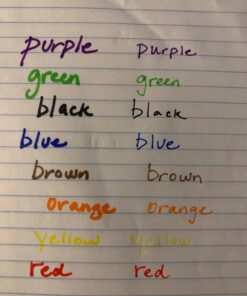 purple purple
green green
black black
blue blue
brown brown
orange orange
yellow yellow
red red